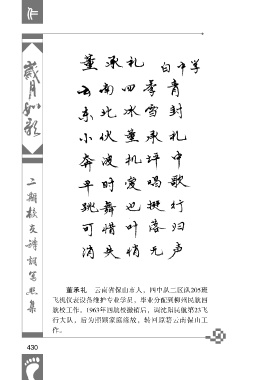 作
岁月如歌
二期校友诗词写照集
董承礼 白中军
云南四季青
东北冰雪封
小伙董承礼
奔波机坪中
平时爱唱歌
跳舞也挺行
可惜叶落归
消失悄无声
董承礼 云南省保山市人，四中队二区队205班
飞机仪表设备维护专业学员，毕业分配到柳州民航四
航校工作。1963年四航校撤销后，调沈阳民航第23飞
行大队，后为照顾家庭缘故，转回原籍云南保山工
作。
430